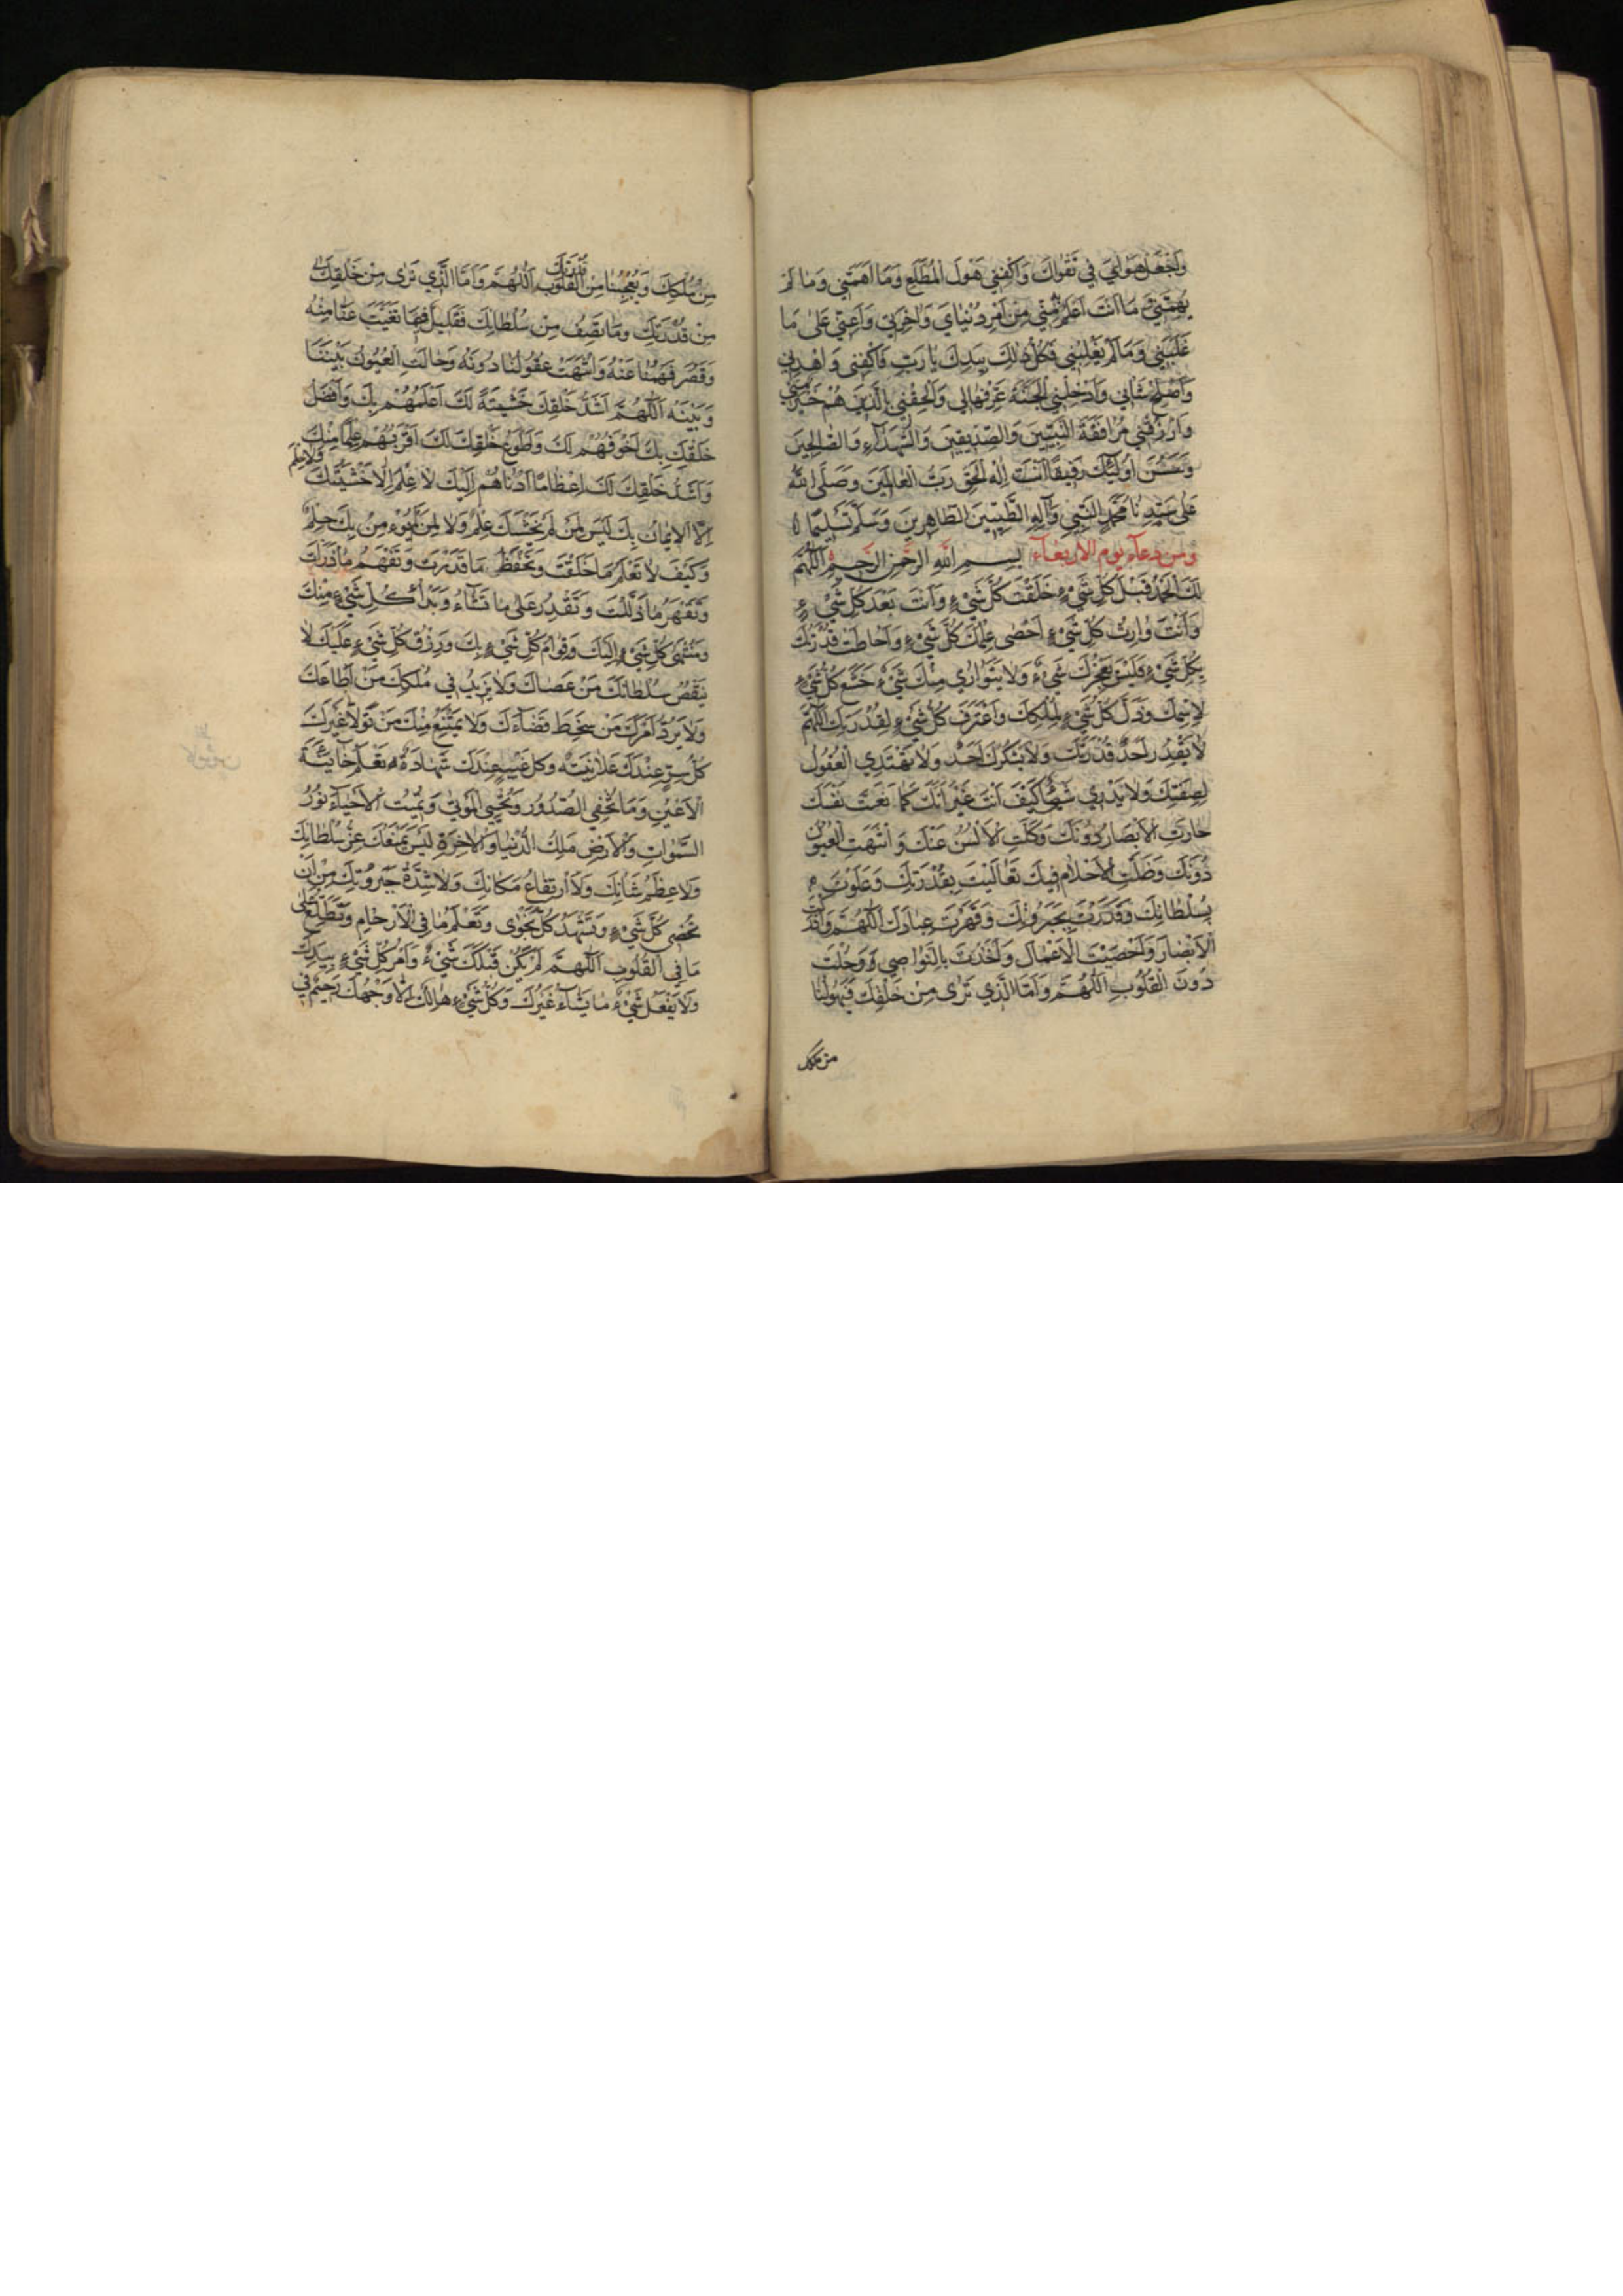 وَاجْعَلْ هَوَايَ فِي تَقْوَاكَ وَاكْفِنِي هَوْلَ الْمُطَّلَعِ وَمَا اَهَمَّنِي وَمَا لَمْ
يُهِمَّنِي مَا اَنْتَ اَعْلَمُ مِنِّي مِنْ اَمْرِ دُنْيَايَ وَاٰخِرَتِي وَاَعِنِّي عَلٰى مَا
غَلَبَنِي وَمَا لَمْ يَغْلِبْنِي فَكُلُّ ذٰلِكَ بِيَدِكَ يَا رَبِّ فَاكْفِنِي وَاهْدِنِي
وَاَصْلِحْ شَانِي وَاَدْخِلْنِي الْجَنَّةَ عَرِّفْهَا لِي وَاَلْحِقْنِي بِالَّذِينَ هُمْ خَيْرٌ مِنِّي
وَارْزُقْنِي مُرَافَقَةَ النَّبِيِّينَ وَالصِّدِّيقِينَ وَالشُّهَدَآءِ وَالصَّالِحِينَ
وَحَسُنَ اُولٰئِكَ رَفِيقًا اَنْتَ اِلٰهُ الْحَقِّ رَبُّ الْعَالَمِينَ وَصَلَّى اللّٰهُ
عَلٰى سَيِّدِنَا مُحَمَّدٍ النَّبِيِّ وَآلِهِ الطَّيِّبِينَ الطَّاهِرِينَ وَسَلَّمَ تَسْلِيمًا
وَمِنْ دُعَآءِ يَوْمِ الْاَرْبِعَآءِ بِسْمِ اللّٰهِ الرَّحْمٰنِ الرَّحِيمِ اَللّٰهُمَّ
لَكَ الْحَمْدُ قَبْلَ كُلِّ شَيْءٍ خَلَقْتَ كُلَّ شَيْءٍ وَاَنْتَ بَعْدَ كُلِّ شَيْءٍ
وَاَنْتَ وَارِثُ كُلِّ شَيْءٍ اَحْصٰى عِلْمُكَ كُلَّ شَيْءٍ وَاَحَاطَتْ قُدْرَتُكَ
بِكُلِّ شَيْءٍ فَلَيْسَ يُعْجِزُكَ شَيْءٌ وَلَا يَتَوَارٰى مِنْكَ شَيْءٌ خَشَعَ كُلُّ شَيْءٍ
لِاِسْمِكَ وَذَلَّ كُلُّ شَيْءٍ لِمُلْكِكَ وَاعْتَرَفَ كُلُّ شَيْءٍ لِقُدْرَتِكَ اَللّٰهُمَّ
لَا يَقْدِرُ اَحَدٌ قُدْرَتَكَ وَلَا يَشْكُرُكَ اَحَدٌ وَلَا تَهْتَدِي الْعُقُولُ
لِصِفَتِكَ وَلَا يَدْرِي شَيْءٌ كَيْفَ اَنْتَ غَيْرَ اَنَّكَ كَمَا نَعَتَّ نَفْسَكَ
حَارَتِ الْاَبْصَارُ دُونَكَ وَكَلَّتِ الْاَلْسُنُ عَنْكَ وَانْتَهَتِ الْعُقُولُ
دُونَكَ وَضَلَّتِ الْاَحْلَامُ فِيكَ تَعَالَيْتَ بِقُدْرَتِكَ وَعَلَوْتَ
بِسُلْطَانِكَ وَقَدَرْتَ بِجَبَرُوتِكَ وَقَهَرْتَ عِبَادَكَ اَللّٰهُمَّ وَاَدْرَكْتَ
الْاَبْصَارَ وَاَحْصَيْتَ الْاَعْمَالَ وَاَخَذْتَ بِالنَّوَاصِي وَحُلْتَ
دُونَ الْقُلُوبِ اَللّٰهُمَّ وَاَمَّا الَّذِي نَرٰى مِنْ خَلْقِكَ فَيَهُولُنَا
من ملكك
مِنْ مُلْكِكَ وَيُعْجِبُنَا مِنْ قُدْرَتِكَ الْقُلُوبِ اَللّٰهُمَّ وَاَمَّا الَّذِي نَرٰى مِنْ خَلْقِكَ
مِنْ قُدْرَتِكَ وَمَا نَصِفُ مِنْ سُلْطَانِكَ فَقَلِيلٌ فِيمَا تَغَيَّبَ عَنَّا مِنْهُ
وَقَصُرَ فَهْمُنَا عَنْهُ وَانْتَهَتْ عُقُولُنَا دُونَهُ وَحَالَتِ الْغُيُوبُ بَيْنَنَا
وَبَيْنَهُ اَللّٰهُمَّ اَشَدُّ خَلْقِكَ خَشْيَةً لَكَ اَعْلَمُهُمْ بِكَ وَاَفْضَلُ
خَلْقِكَ بِكَ اَخْوَفُهُمْ لَكَ وَاَطْوَعُ خَلْقِكَ لَكَ اَقْرَبُهُمْ مِنْكَ
وَاَشَدُّ خَلْقِكَ لَكَ اِعْظَامًا اَدْنَاهُمْ اِلَيْكَ لَا عِلْمَ اِلَّا خَشْيَتُكَ وَلَا حِلْمَ
اِلَّا الْاِيمَانُ بِكَ لَيْسَ لِمَنْ لَمْ يَخْشَكَ عِلْمٌ وَلَا لِمَنْ لَمْ يُؤْمِنْ بِكَ حِلْمٌ
وَكَيْفَ لَا تَعْلَمُ مَا خَلَقْتَ وَتَحْفَظُ مَا قَدَّرْتَ وَتَفْهَمُ مَا ذَرَاْتَ
وَتَقْهَرُ مَا ذَلَّلْتَ وَتَقْدِرُ عَلٰى مَا تَشَآءُ وَبَدْأُ كُلِّ شَيْءٍ مِنْكَ
وَمُنْتَهٰى كُلِّ شَيْءٍ اِلَيْكَ وَقِوَامُ كُلِّ شَيْءٍ بِكَ وَرِزْقُ كُلِّ شَيْءٍ عَلَيْكَ لَا
يَنْقُصُ سُلْطَانَكَ مَنْ عَصَاكَ وَلَا يَزِيدُ فِي مُلْكِكَ مَنْ اَطَاعَكَ
وَلَا يَرُدُّ اَمْرَكَ مَنْ سَخِطَ قَضَآءَكَ وَلَا يَمْتَنِعُ مِنْكَ مَنْ تَوَلّٰى غَيْرَكَ
كُلُّ سِرٍّ عِنْدَكَ عَلَانِيَةٌ وَكُلُّ غَيْبٍ عِنْدَكَ شَهَادَةٌ تَعْلَمُ خَآئِنَةَ
الْاَعْيُنِ وَمَا تُخْفِي الصُّدُورُ وَتُحْيِي الْمَوْتٰى وَتُمِيتُ الْاَحْيَآءَ نُورُ
السَّمٰوَاتِ وَالْاَرْضِ مَلِكُ الدُّنْيَا وَالْاٰخِرَةِ لَيْسَ يَمْنَعُكَ عِزُّ سُلْطَانِكَ
وَلَا عِظَمُ شَانِكَ وَلَا ارْتِفَاعُ مَكَانِكَ وَلَا شِدَّةُ جَبَرُوتِكَ مِنْ اَنْ
تُحْصِيَ كُلَّ شَيْءٍ وَتَشْهَدَ كُلَّ نَجْوٰى وَتَعْلَمَ مَا فِي الْاَرْحَامِ وَتَطَّلِعَ عَلٰى
مَا فِي الْقُلُوبِ اَللّٰهُمَّ لَمْ يَكُنْ قَبْلَكَ شَيْءٌ وَاَمْرُ كُلِّ شَيْءٍ بِيَدِكَ
وَلَا يَفْعَلُ شَيْءٌ مَا يَشَآءُ غَيْرُكَ وَكُلُّ شَيْءٍ هَالِكٌ اِلَّا وَجْهُكَ رَحِيمٌ فِي